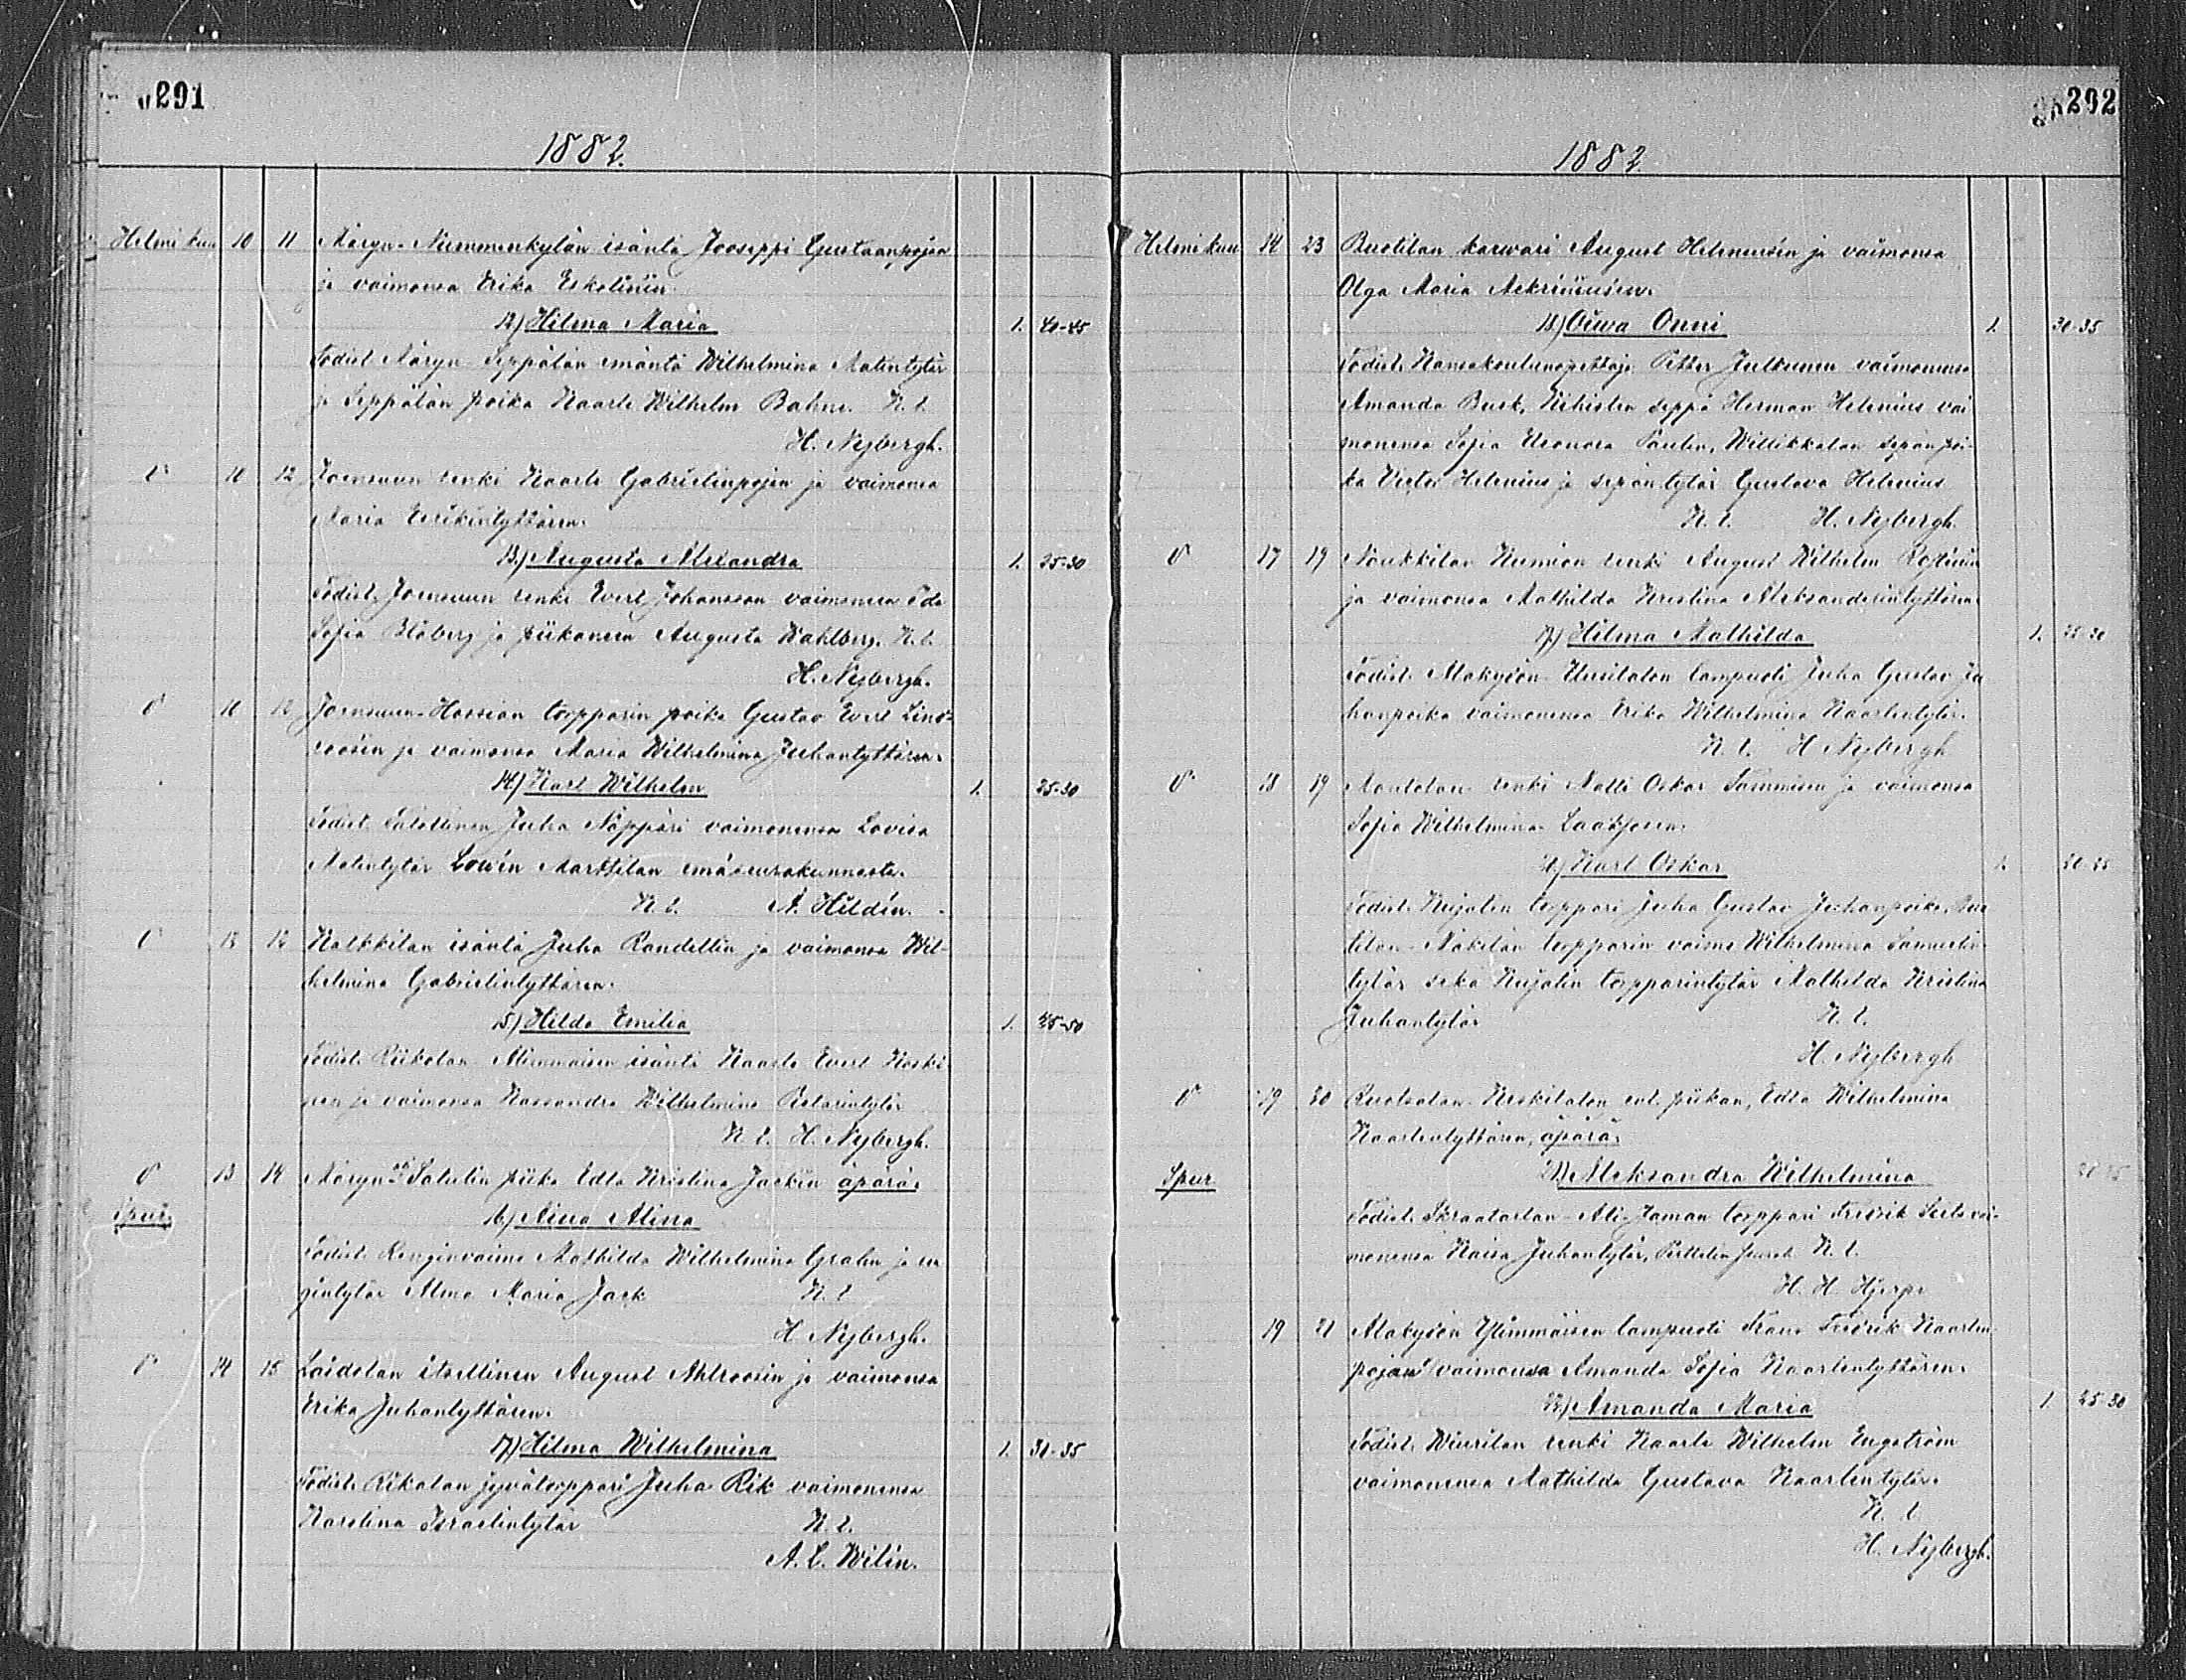 291
1882.
Helmikuu 10 11 Näryn-Nummenkylän isäntä Jooseppi Gustaanpojan
ja vaimonsa Erika Eskolinin
12) Hilma Maria 1. 40-45
Todist. Näryn-Seppälän emäntä Wilhelmina Matintytär
ja Seppälän poika Kaarle Wilhelm Bahne. K. t.
H. Nybergh.
10 12 Joensuun renki Kaarle Gabrielinpojan ja vaimonsa
Maria Eerikintyttären.
13) Augusta Alexandra 1. 25-30
Todist. Joensuun renki Evert Johansson vaimonensa Ida
Sofia Blåberg ja piikanen Augusta Wahlberg. K. t.
H. Nybergh.
10 12 Joensuun-Hossian torpparin poika Gustav Evert Lind-
roosin ja vaimonsa Maria Wilhelmina Juhantyttären.
14) Karl Wilhelm 1. 25-30
Todist. Talollinen Juha Näppäri vaimonensa Lovisa
Matintytär Lowén Marttilan emäseurakunnasta.
K. t. A. Hildén.
12 Kalkkilan isäntä Juha Randellin ja vaimonsa Wil-
helmina Gabrielintyttären.
15) Hilda Emilia 1. 45-50
Todist. Riikolan Alimmaisen isäntä Kaarle Evert Koski-
nen ja vaimonsa Kassandra Wilhelmina Pietarintytär
K. t. H. Nybergh.
13 14 Näryn Satulin piika Edla Kristina Jackin äpärä.
Spur. 16) Aina Alina
Todist. Renginvaimo Mathilda Wilhelmina Grahn ja ren-
gintytär Alma Maria Jack K. t.
H. Nybergh.
14 15 Laidolan itsellinen August Ahlroosin ja vaimonsa
Erika Juhantyttären.
17) Hilma Wilhelmina 1. 30-35
Todist. Rikalan jyvätorppari Juha Rik vaimonensa
Karolina Israelintytär K. t.
A. E. Wilén.
292
1882.
Helmikuu 14 23 Buotilan karwari August Heleniusén ja vaimonsa
Olga Maria
18) Oiwa Onni 1. 30-35
Todist. Kansakoulunopettaja Petter Julkunen vaimonensa
Amanda Busk, seppä Herman Helenius vai-
monensa Sofia Eleonora Paulin, Willikkalan sepänpoi-
ka Victor Helenius ja sepäntytär Gustava Helenius
K. t. H. Nybergh.
17 19 renki August Wilhelm
ja vaimonsa Mathilda Kristina Aleksanderintyttären
19) Hilma Mathilda 1. 25-30
Todist. Alakyöön Uusitalon lampuoti Juha Gustav Ju-
hanpoika vaimonensa Erika Wilhelmina Kaarlentytär.
K. t. H. Nybergh
18 19 renki Matti Oskar Tammisen ja vaimonsa
Sofia Wilhelmina Laaksosen
20) Karl Oskar 1. 30-35
Todist. Kujalin torppari Juha Gustav Juhanpoika,
Mäkelän torpparin vaimo Wilhelmina Samuelin-
tytär sekä Kujalin torpparintytär Mathilda Kristina
Juhantytär K. t.
H. Nybergh
19 20 Ruotsalan Keskitalon ent. piikan, Edla Wilhelmina
Kaarlentyttären, äpärä.
Spur. 21) Aleksandra Wilhelmina
Todist. torppari Fredrik vai-
monensa Kaisa Juhantytär, K. t.
H. H. Hjerpe
19 21 Alakyöön Ylimmäisen lampuoti Frans Fredrik Kaarlen-
pojan vaimonsa Amanda Sofia Kaarlentyttären.
22) Amanda Maria 1. 25-30
Todist. Wiurilan renki Kaarle Wilhelm Engström
vaimonensa Mathilda Gustava Kaarlentytär.
K. t.
H. Nybergh.